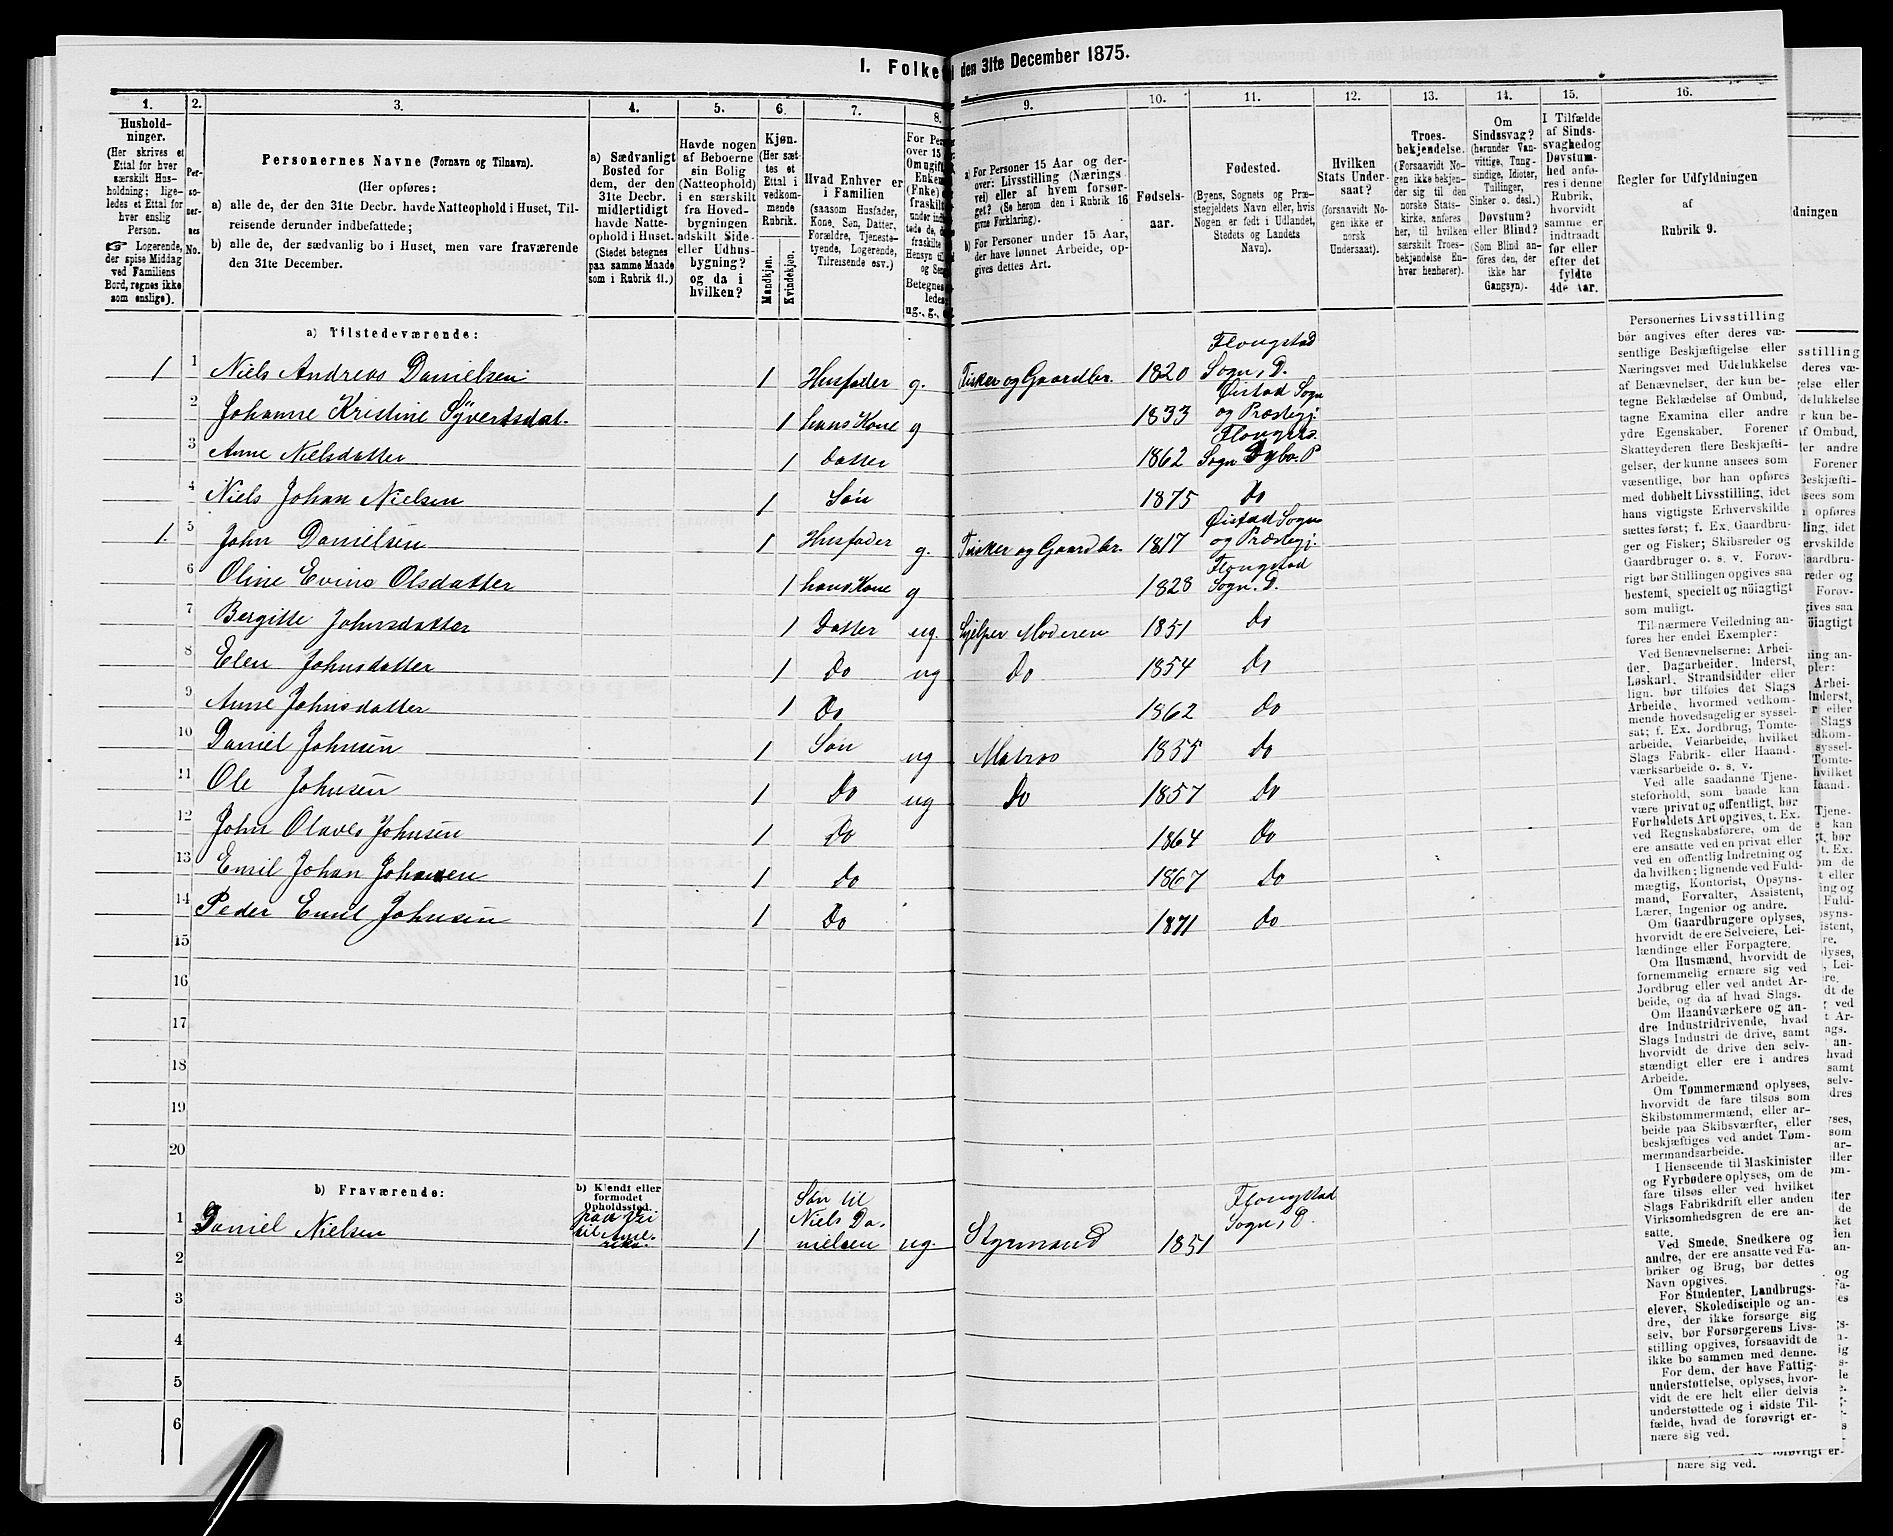 I. Folketal den 31te December 1875.
1.
2.
3.
4.
5.
6.
7.
8.
9.
10.
11.
12.
13.
14.
15.
16.
Husholdninger.
(Her skrives et
Ettal for hver
særskilt Husholdning; ligeledes et Ettal for
hver enslig
Person.
☞ Logerende,
der spise Middag
ved Familiens
Bord, regnes ikke
som enslige).
Personernes No.
Personernes Navne (Fornavn og Tilnavn).
(Her opføres:
a) alle de, der den 31te Decbr. havde Natteophold i Huset, Tilreisende derunder indbefattede;
b) alle de, der sædvanlig bo i Huset, men vare fraværende
den 31te December.
a) Sædvanligt
Bosted for
dem, der den
31te Decbr.
midlertidigt
havde Natteophold i Huset.
(Stedet betegnes
paa samme Maade
som i Rubrik 11.)
Havde nogen
af Beboerne
sin Bolig
(Natteophold)
i en særskilt
fra Hovedbygningen
adskilt Side-
eller Udhusbygning?
og da i
hvilken?
Kjøn.
(Her sættes et
Ettal i
vedkommende
Rubrik.
Mandkjøn.
Kvindekjøn.
Hvad Enhver er
i Familien
(saasom Husfader,
Kone, Søn, Datter,
Forældre, Tjenestetyende, Logerende,
Tilreisende osv.)
a) For Personer 15 Aar og derover: Livsstilling (Næringsvei) eller af hvem forsørget? (Se herom den i Rubrik 16
givne Forklaring).
b) For Personer under 15 Aar,
der have lønnet Arbeide, opgives dettes Art.
Fødselsaar.
Fødested.
(Byens, Sognets og Præstegjeldets Navn eller, hvis
Nogen er født i Udlandet,
Stedets og Landets
Navn).
Hvilken
Stats Undersaat?
(forsaavidt Nogen ikke er
norsk
Undersaat).
Troesbekjendelse.
(Forsaavidt Nogen ikke bekjender sig til den
norske Statskirke, anføres
her, til hvilken
særskilt Troesbekjendelse Enhver henhører).
Om
Sindssvag?
(herunder Vanvittige, Tungsindige, Idioter,
Tullinger,
Sinker o. desl.)
Døvstum?
eller Blind?
(Som Blind anføres den, der
ikke har
Gangsyn).
I Tilfælde
af Sindssvaghed og
Døvstumhed anføres i denne
Rubrik,
hvorvidt
samme er
indtraadt
før eller
efter det
fyldte
4de Aar.
Regler for Udfyldningen
af
Rubrik 9.
a) Tilstedeværende:
1 1 Niels Andreas Danielsen 1 Husfader g. Fisker og Gaardbr. 1820 Flougstad Sogn, D.
2 Johanne Kristine Syvertsdat. 1 hans Kone g 1833 Øistad Sogn og Præstegj.
3 Anne Nielsdatter 1 Datter 1862 Sogn Dybv. P
4 Niels Johan Nielsen 1 Søn 1875 Do
1 5 John Danielsen 1 Husfader g. Fisker og Gaardbr. 1817 Øistad Sogn og Præstegj.
6 Oline Evine Olsdatter 1 hans Kone g 1828 Flougstad Sogn. D.
7 Bergitte Johnsdatter 1 Datter ug. hjelper Moderen 1851 Do
8 Elen Johnsdatter 1 Do ug Do 1854 Do
9 Anne Johnsdatter 1 Do 1862 Do
10 Daniel Johnsen 1 Søn ug Matros 1855 Do
11 Ole Johnsen 1 Do ug Do 1857 Do
12 John Olaves Johnsen 1 Do 1864 Do
13 Emil Johan Johnsen 1 Do 1867 Do
14 Peder Emil Johnsen 1 Do 1871 Do
15
16
17
18
19
20
b) Fraværende:
b) Kjendt eller
formodet
Opholdssted.
1 Daniel Nielsen paa Vei til Amerika. 1 Søn til Niels Danielsen ug. Styrmand 1851 Flougstad Sogn, P.
2
3
4
5
6
Personernes Livsstilling
bør angives efter deres væsentlige Beskjæftigelse eller
Næringsvei med Udelukkelse
af Benævnelser, der kun betegne Beklædelse af Ombud,
tagne Examina eller andre
ydre Egenskaber. Forener
Skatteyderen flere Beskjæftigelser, der kunne ansees som
væsentlige, bør han opføres
med dobbelt Livsstilling, idet
hans vigtigste Erhvervskilde
sættes først; f. Ex. Gaardbruger og Fisker; Skibsreder og
Gaardbruger o. s. v. Forøvrigt bør Stillingen opgives saa
bestemt, specielt og nöiagtigt
som muligt.
Til nærmere Veiledning anføres her endel Exempler:
Ved Benævnelserne: Arbeider, Dagarbeider, Inderst,
Løskarl, Strandsidder eller
lign. bør tilføies det Slags
Arbeide, hvormed vedkommende hovedsagelig er sysselsat; f. Ex. Jordbrug, Tomtearbeide, Veiarbeide, hvilket
Slags Fabrik- eller Haandværksarbeide o. s. v.
Ved alle saadanne Tjenesteforhold, som baade kan
være privat og offentligt, bør
Forholdets Art opgives, t. Ex.
ved Regnskabsførere, om de
ere ansatte ved en privat eller
ved en offentlig Indretning og
da hvilken; lignende ved Fuldmægtig, Kontorist, Opsynsmand, Forvalter, Assistent,
Lærer, Ingeniør og andre.
Om Gaardbrugere oplyses,
hvorvidt de ere Selveiere, Leilændinge eller Forpagtere.
Om Husmænd, hvorvidt de
fornemmelig ernære sig ved
Jordbrug eller ved andet Arbeide, og da af hvad Slags.
Om Haandværkere og andre Industridrivende, hvad
Slags Industri de drive, samt
hvorvidt de drive den selvstændigt eller ere i andres
Arbeide.
Om Tømmermænd oplyses,
hvorvidt de fare tilsøs som
Skibstømmermænd, eller arbeide paa Skibsværfter, eller
beskjæftiges ved andet Tømmermandsarbeide.
I Henseende til Maskinister
og Fyrbødere oplyses, om de
fare tilsøs eller ved hvilket
Slags Fabrikdrift eller anden
Virksomhedsgren de ere ansatte.
Ved Smede, Snedkere og
andre, der ere ansatte ved Fabriker og Brug, bør dettes
Navn opgives.
For Studenter, Landbrugselever, Skoledisciple og andre, der ikke forsørge sig
selv, bør Forsørgerens Livsstilling opgives, forsaavidt de
ikke bo sammen med denne.
For dem, der have Fattigunderstøttelse, oplyses, hvorvidt de ere helt eller delvis
understøttede og i sidste Tilfælde, hvad de forøvrigt ernære sig ved.